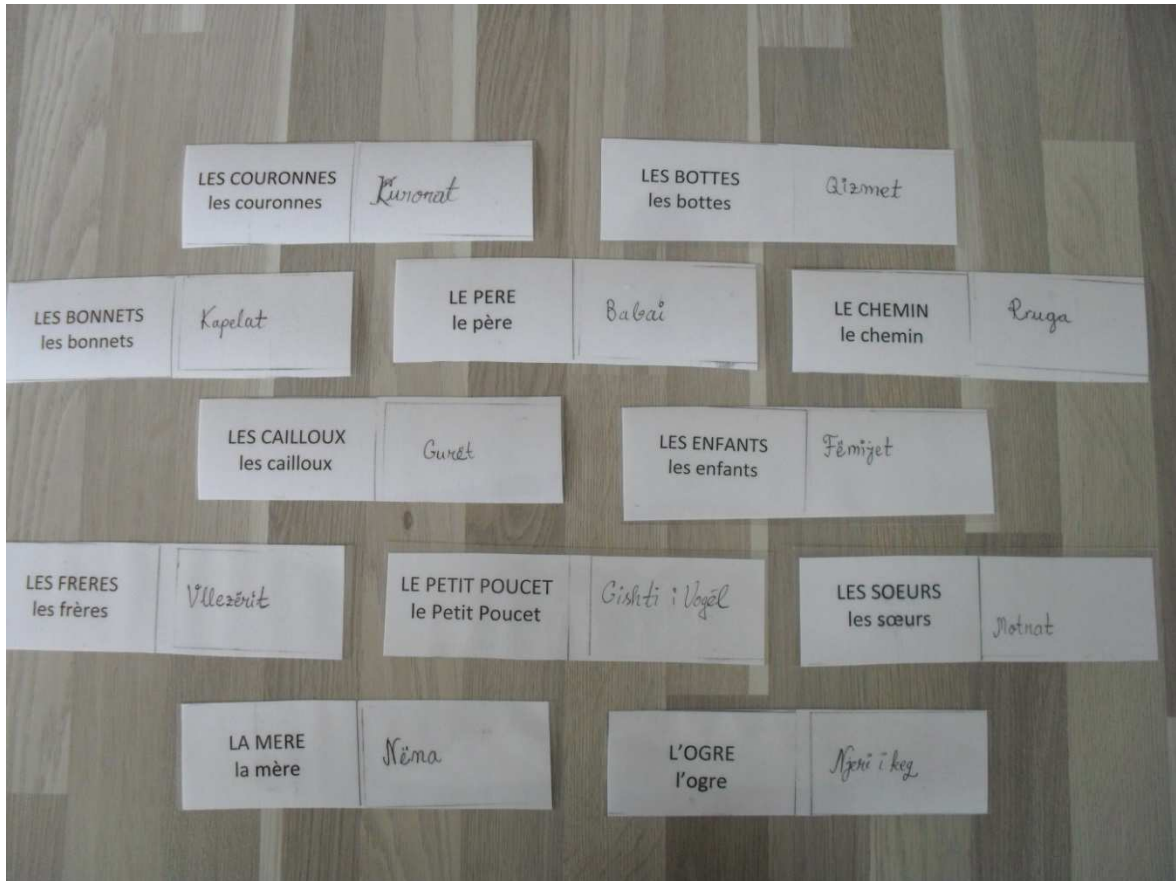 LES COURONNES
les couronnes
Kuronat
LES BOTTES
les bottes
Qizmet
LES BONNETS
les bonnets
Kapelat
LE PERE
le père
Babai
LE CHEMIN
le chemin
Rruga
LES CAILLOUX
les cailloux
Gurët
LES ENFANTS
les enfants
Fëmijet
LES FRERES
les frères
Vllezërit
LE PETIT POUCET
le Petit Poucet
Gishti i Vogël
LES SOEURS
les sœurs
Motrat
LA MERE
la mère
Nëna
L'OGRE
l'ogre
Njeri i keq